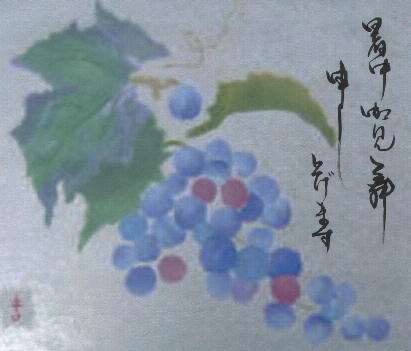 暑中御見舞
申し
上げます